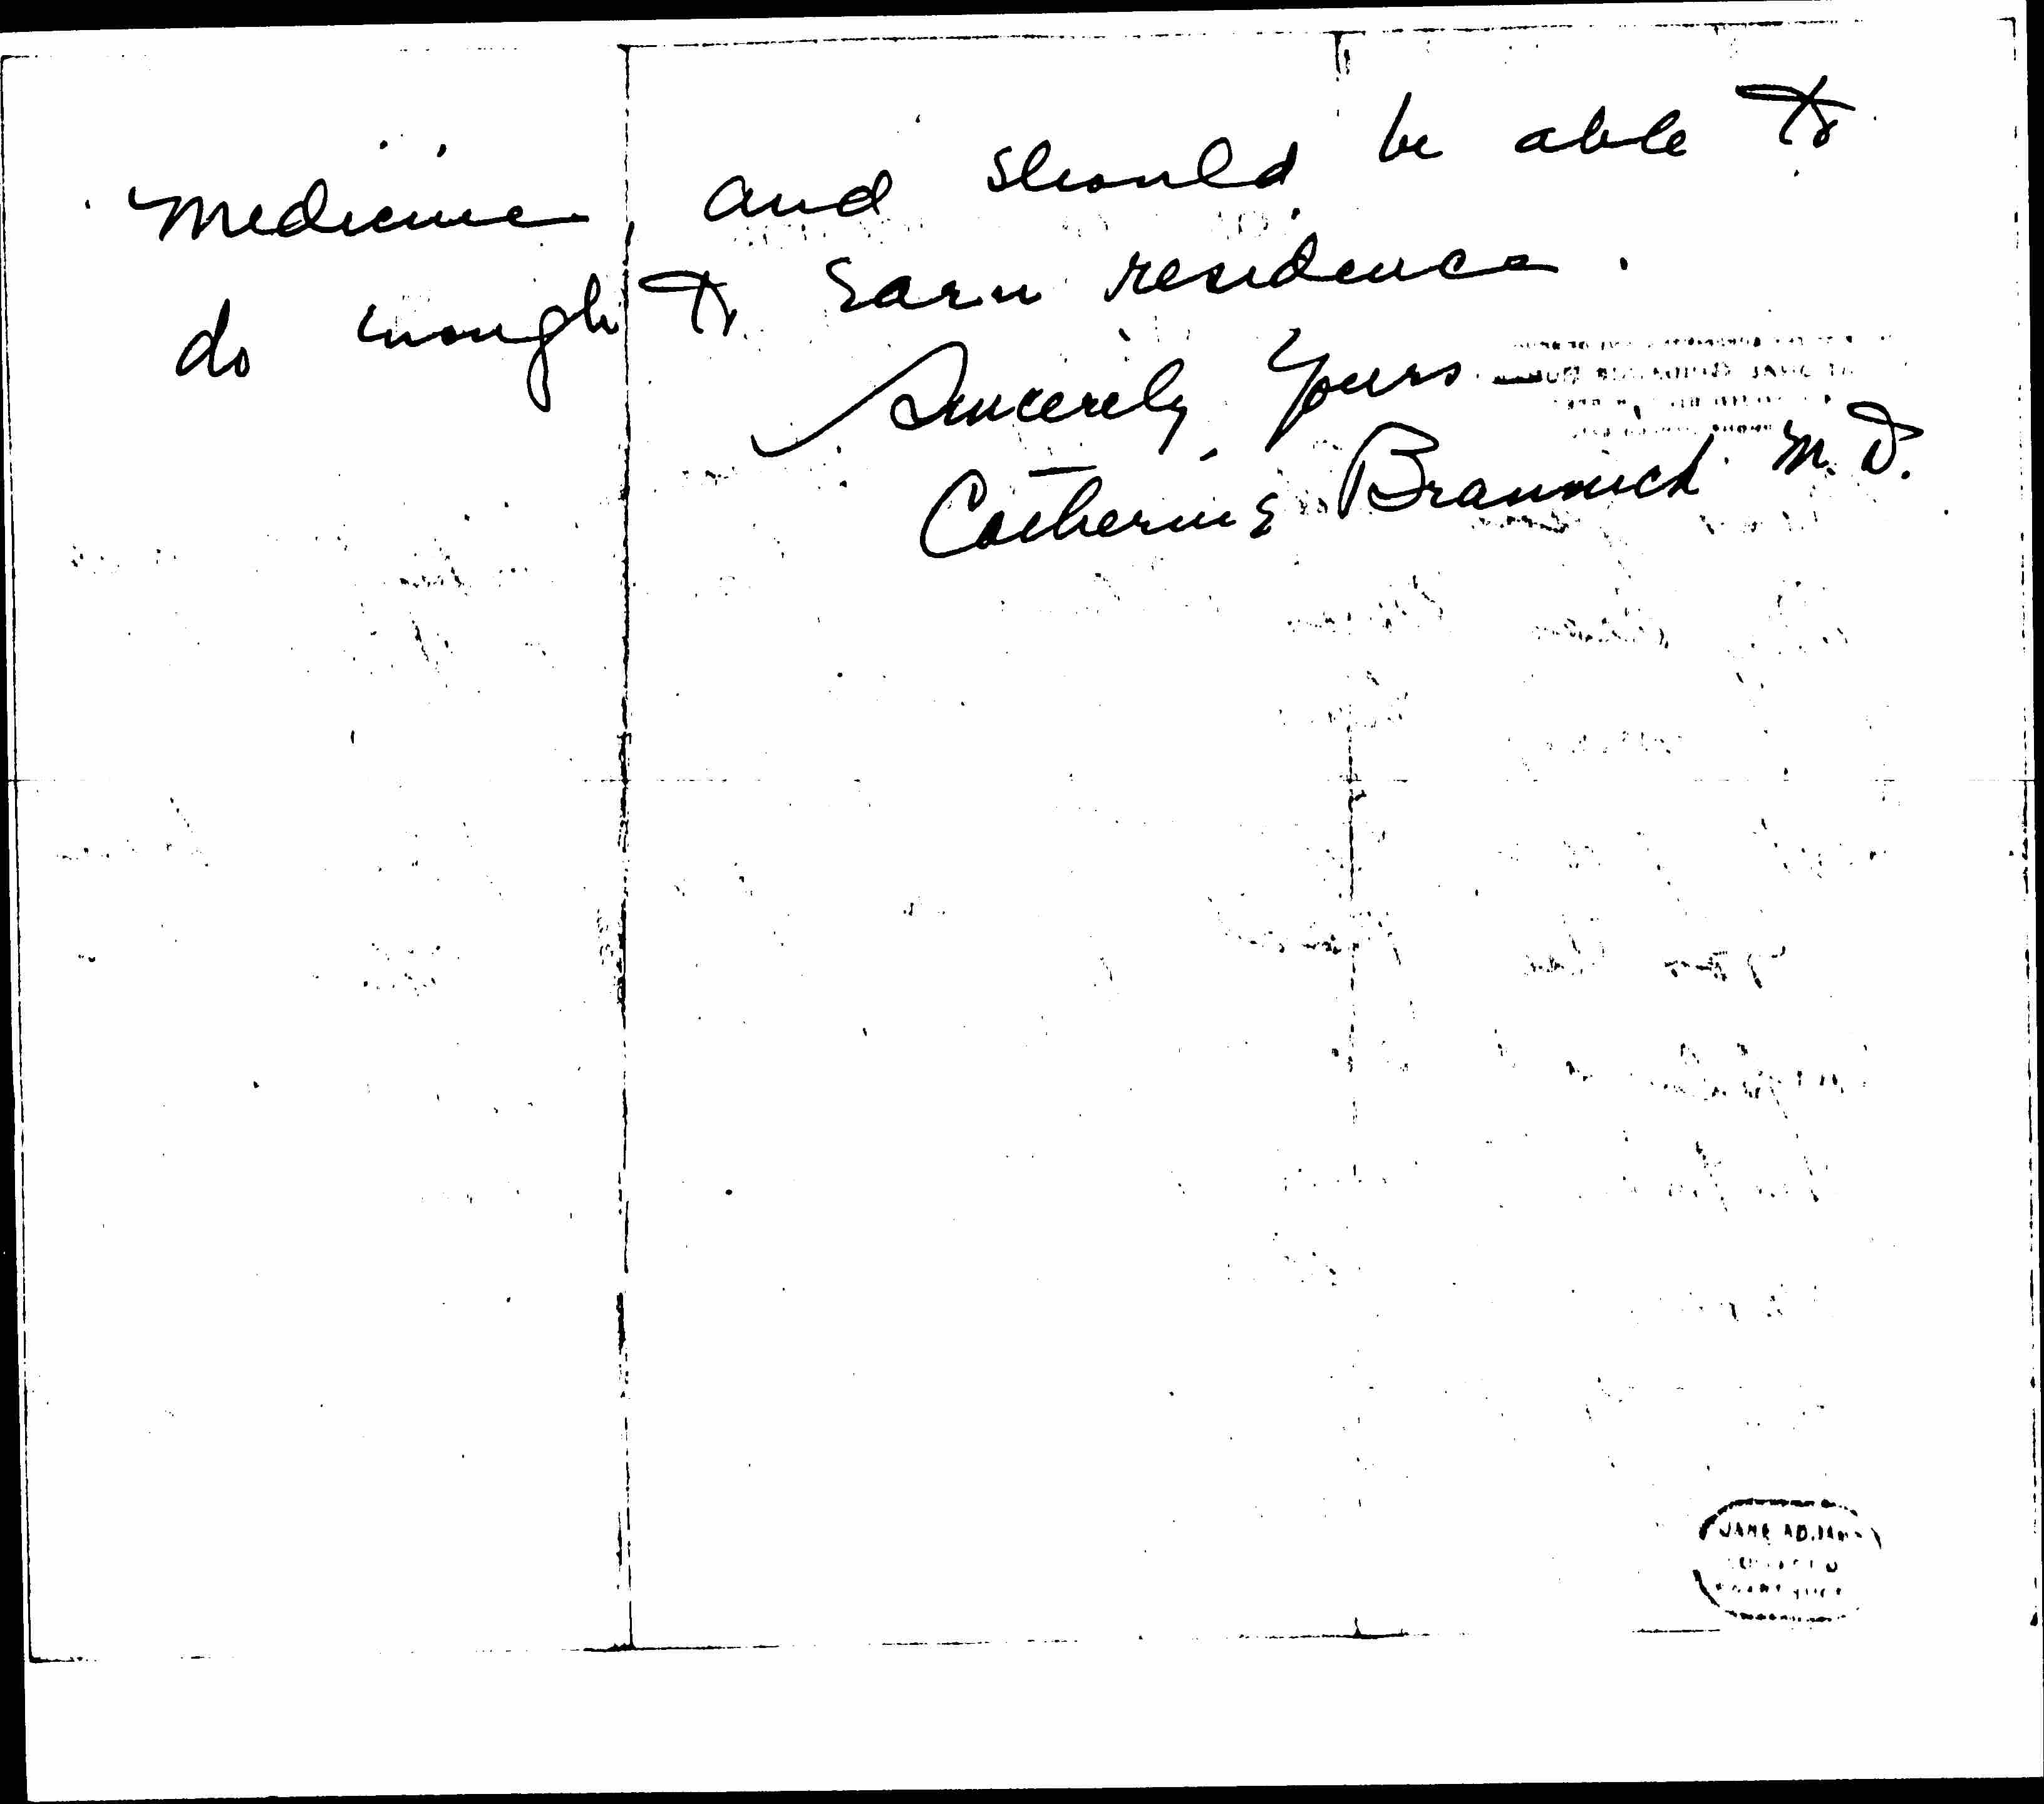 medicine, and should be able to
do enough to earn residence.
Sincerely Yours
Catherine Brannick M.D.
JANE ADDAMS